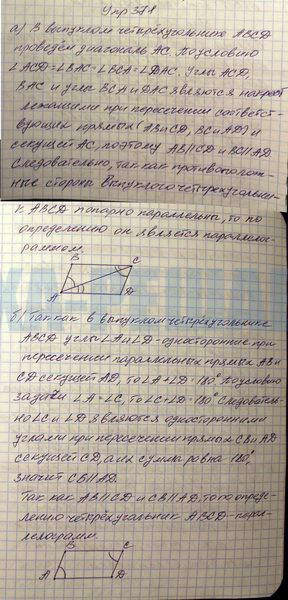 Упр 371
а) В выпуклом четырёхугольнике ABCD
проведём диагональ AC. По условию
∠ACD=∠BAC=∠BCA=∠DAC. Углы ACD,
BAC и углы BCA и DAC являются накрест
лежащими при пересечении соответст-
вующих прямых (AB и CD, BC и AD) и
секущей AC, поэтому AB||CD и BC||AD
Следовательно, так как противополож-
ные стороны выпуклого четырёхугольни-
ка ABCD попарно параллельны, то по
определению он является параллело-
граммом.
B C
A D
б) Так как в выпуклом четырёхугольнике
ABCD углы ∠A и ∠D - односторонние при
пересечении параллельных прямых AB и
CD секущей AD, то ∠A+∠D=180° По условию
задачи ∠A=∠C, то ∠C+∠D=180° Следователь-
но ∠C и ∠D являются односторонними
углами при пересечении прямых CB и AD
секущей CD, а их сумма равна 180°,
значит CB||AD.
Так как AB||CD и CB||AD, то по опреде-
лению четырёхугольник ABCD - парал-
лелограмм.
B C
A D